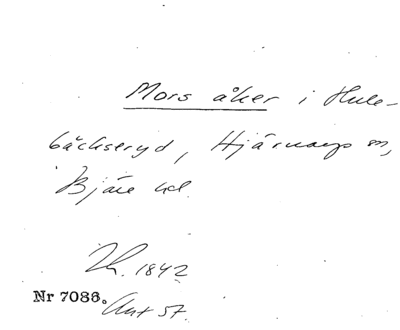 Mors åker i Hule-
bäckseryd, Hjärnarps sn,
Bjäre hd.
Lh. 1842
Nr 7086. Avt 57.